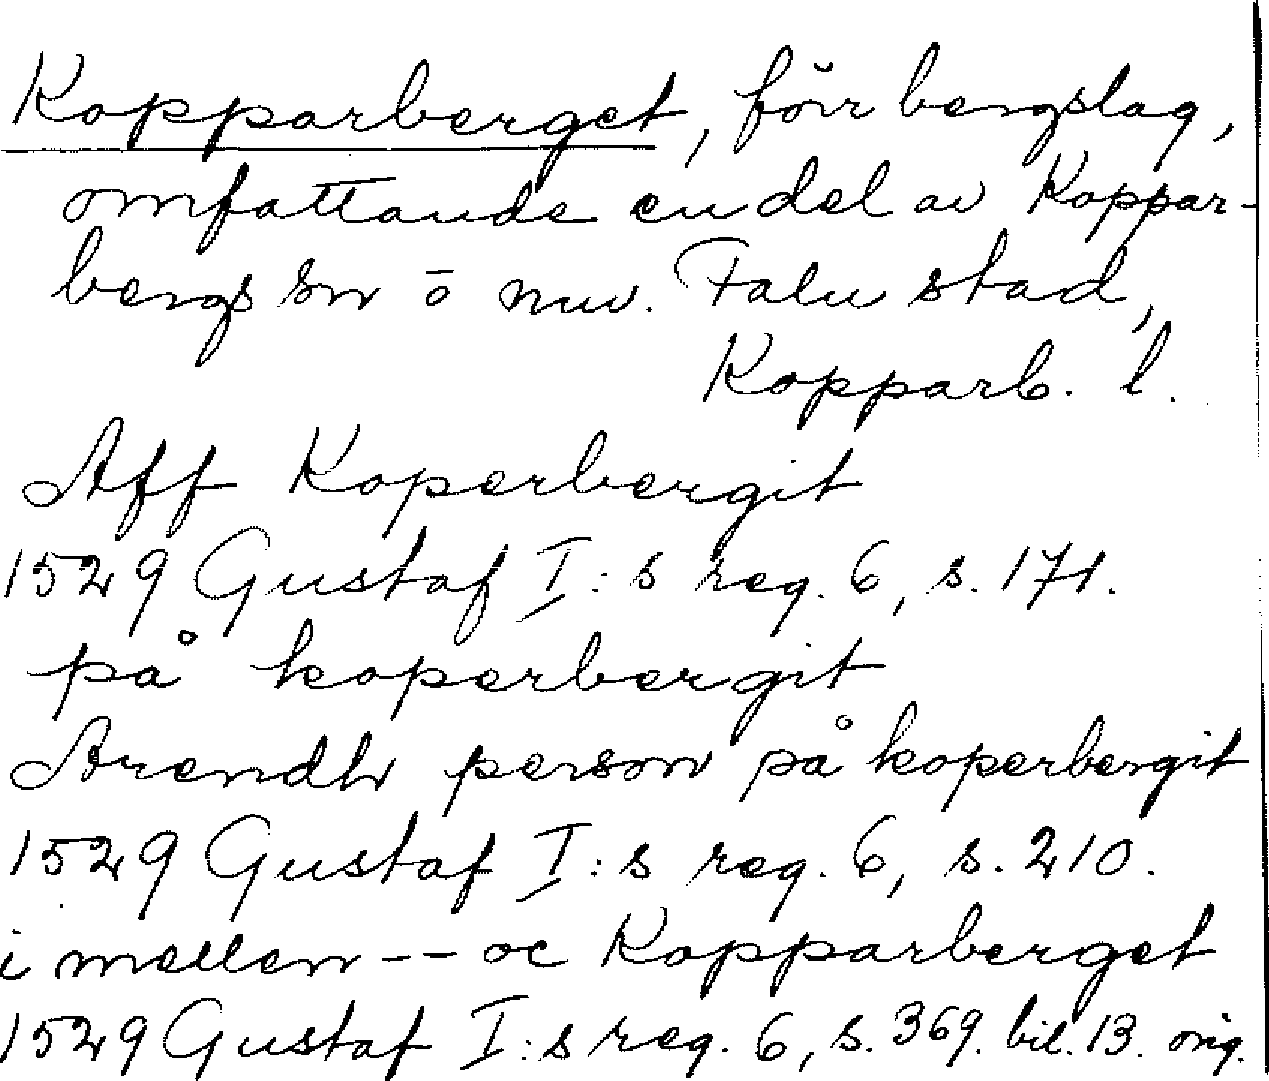 Kopparberget, förr bergslag,
omfattande en del av Koppar-
bergs sn o nuv. Falu stad,
Kopparb. l.
Aff Koperbergit
1529 Gustaf I:s reg. 6, s. 171.
på koperbergit
Arendh person på koperbergit
1529 Gustaf I:s reg. 6, s. 210.
i mellen -- oc Kopparberget
1529 Gustaf I:s reg. 6, s. 369. bil. 13. orig.